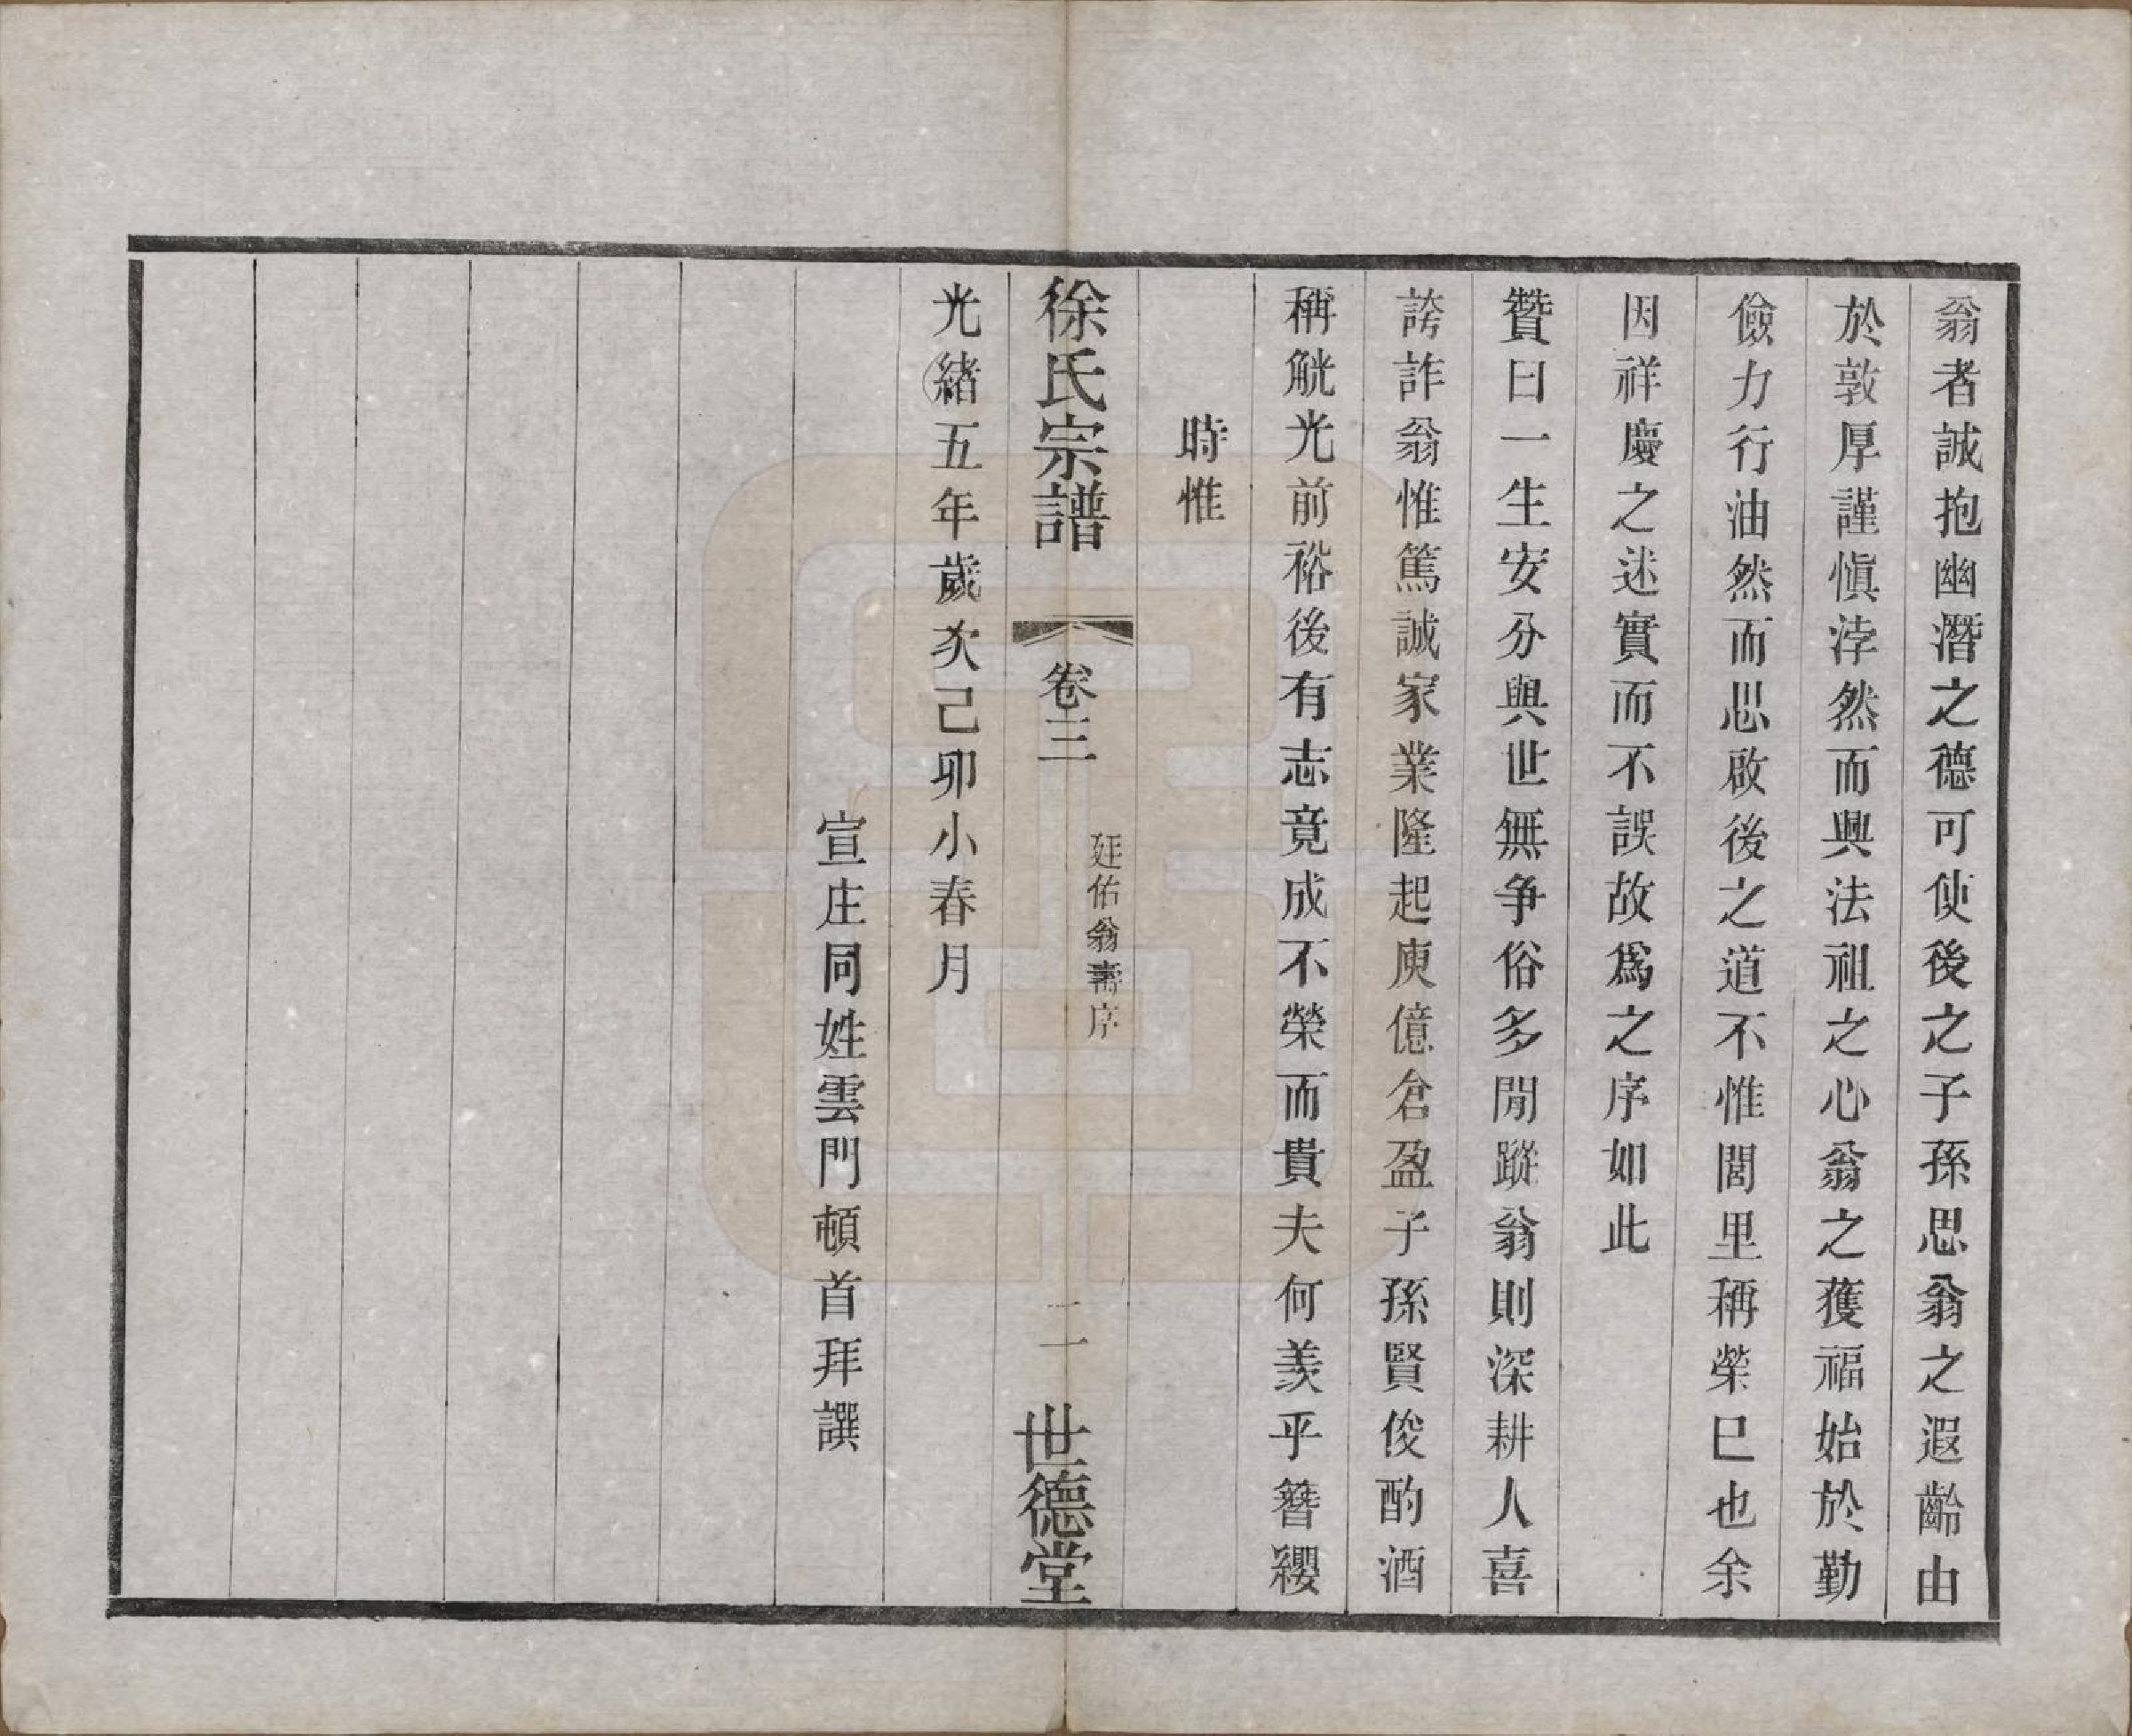 翁者誠抱幽潛之德可使後之子孫思翁之遐齡由
於敦厚謹愼浡然而興法祖之心翁之獲福始於勤
儉力行油然而思啟後之道不惟閭里稱榮巳也余
因祥慶之述實而不誤故爲之序如此
贊曰一生安分與世無争俗多閒蹤翁則深耕人喜
誇詐翁惟篤誠家業隆起庾億倉盈子孫賢俊酌酒
稱觥光前裕後有志竟成不榮而貴夫何羨乎簪纓
時惟
徐氏宗譜
卷三
廷佑翁壽序
二
世德堂
光緒五年歲次己卯小春月
宣庄同姓雲門頓首拜譔